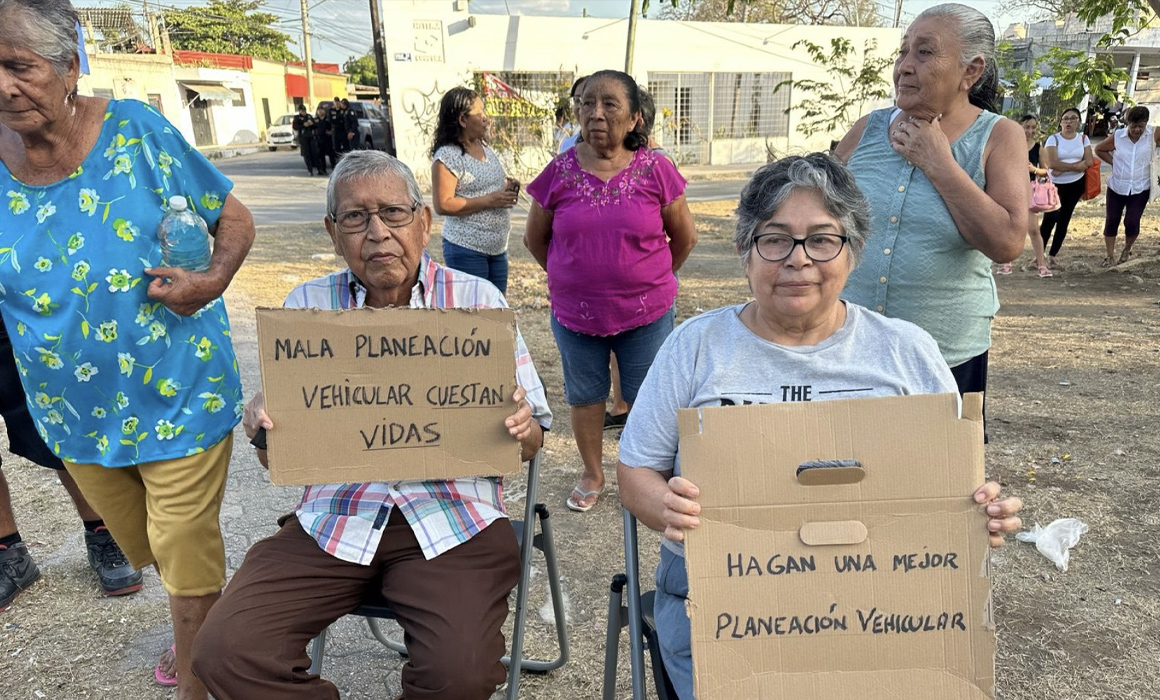 MALA PLANEACIÓN
VEHICULAR CUESTAN
VIDAS
THE
HAGAN UNA MEJOR
PLANEACIÓN VEHICULAR